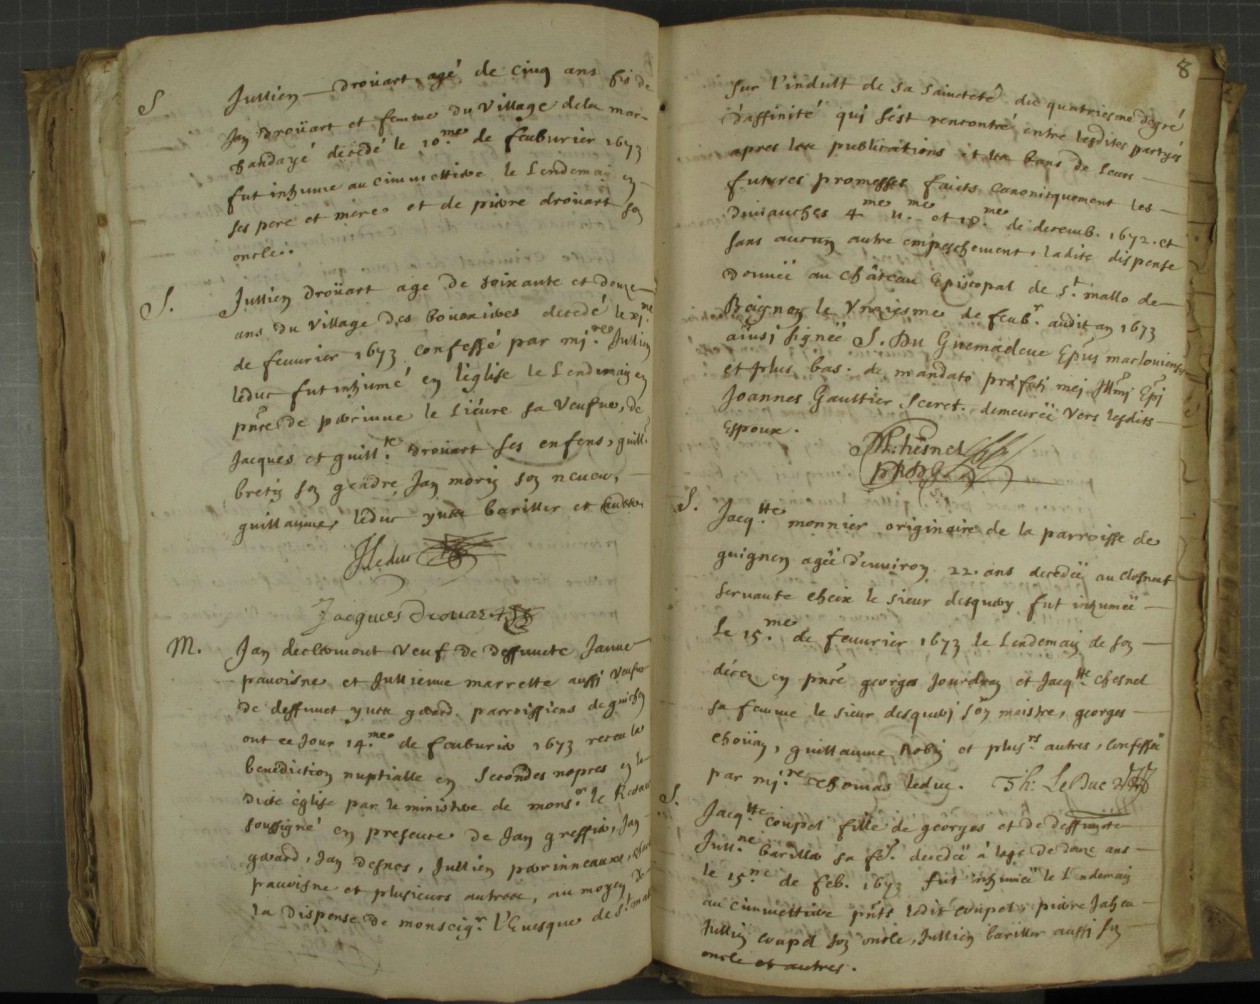 S Jullien Droüart agé de cinq ans fis de
Jan Droüart et femme du village de la mar-
chandayé décédé le 10.me de feuburier 1673
fut inhumé au cimmettiere le Lendemain en
ses pere et mere et de pierre droüart son
oncle..
S. Jullien Droüart agé de soixante et douze
ans du village des decedé le xj.me
de feuurier 1673 confessé par mi.re Jullien
leduc fut inhumé en l'église le Lendemain en
pñce de perrinne le Lieure sa veufue, de
Jacques et guill.e Droüart ses enfens, guill.
bretin son gendre, Jan morin son neueu,
guillaume leduc yues bariller et autres
J Leduc
Jacques Drouart
M. Jan declemont veuf de deffuncte Janne
pauoisne et Jullienne marrette aussi veufue
de deffunct yues gerard parroissiens de guichen
ont ce Jour 14.me de feuburier 1673 receu la
benediction nuptialle en secondes nopces en la
dicte église par le ministere de mons.r le Recteur
soussigné en presence de Jan greffin, Jan
gerard, Jan desnos, Jullien perinneaux,
pauoisne et plusieurs autres, au moyen de
la dispense de monseig.r l'Euesque de S.t malo
8
sur l'indult de sa saincteté du quatriesme degré
d'affinité qui s'est rencontré entre lesdites partyes
apres les publications et les bans de leurs
futures promesses faicts canonicquement les
dimanches 4.me 11.me et 18.me de decemb. 1672. et
sans aucun autre empeschement, ladite dispense
donnée au château Episcopal de S.t mallo de
Beignon le vnziesme de feub.r audit an 1673
ainsi signée S. Du Guemadeuc Epũs macloviensis
et plus bas. de mandato præfati mei Jllmi Epi
Joannes Gaultier Secret. demeurée vers lesdits
Espoux.
Chesnel
S. Jacq.tte monnier originaire de la parroisse de
guignen agée d'enuiron 22. ans decedée au closneuf
seruante cheix le sieur desquoy fut inhumée
le 15.me de feuurier 1673 le Lendemain de son
décez en pñce georges Jourdren et Jacq.tte chesnel
sa femme le sieur desquoy son maistre, georges
choüan, guillaume Robin et plus.rs autres, confessée
par mi.re thomas leduc. Th: LeDuc
S. Jacq.tte coupel fille de georges et de deffuncte
Jull.ne bariller sa fe. decedée à l'age de douze ans
le 15.me de feb. 1673 fut inhumée le Lendemain
au cimmettiere pñts ledit coupel, pierre
Jullien coupel son oncle, Jullien bariller aussi son
oncle et autres.